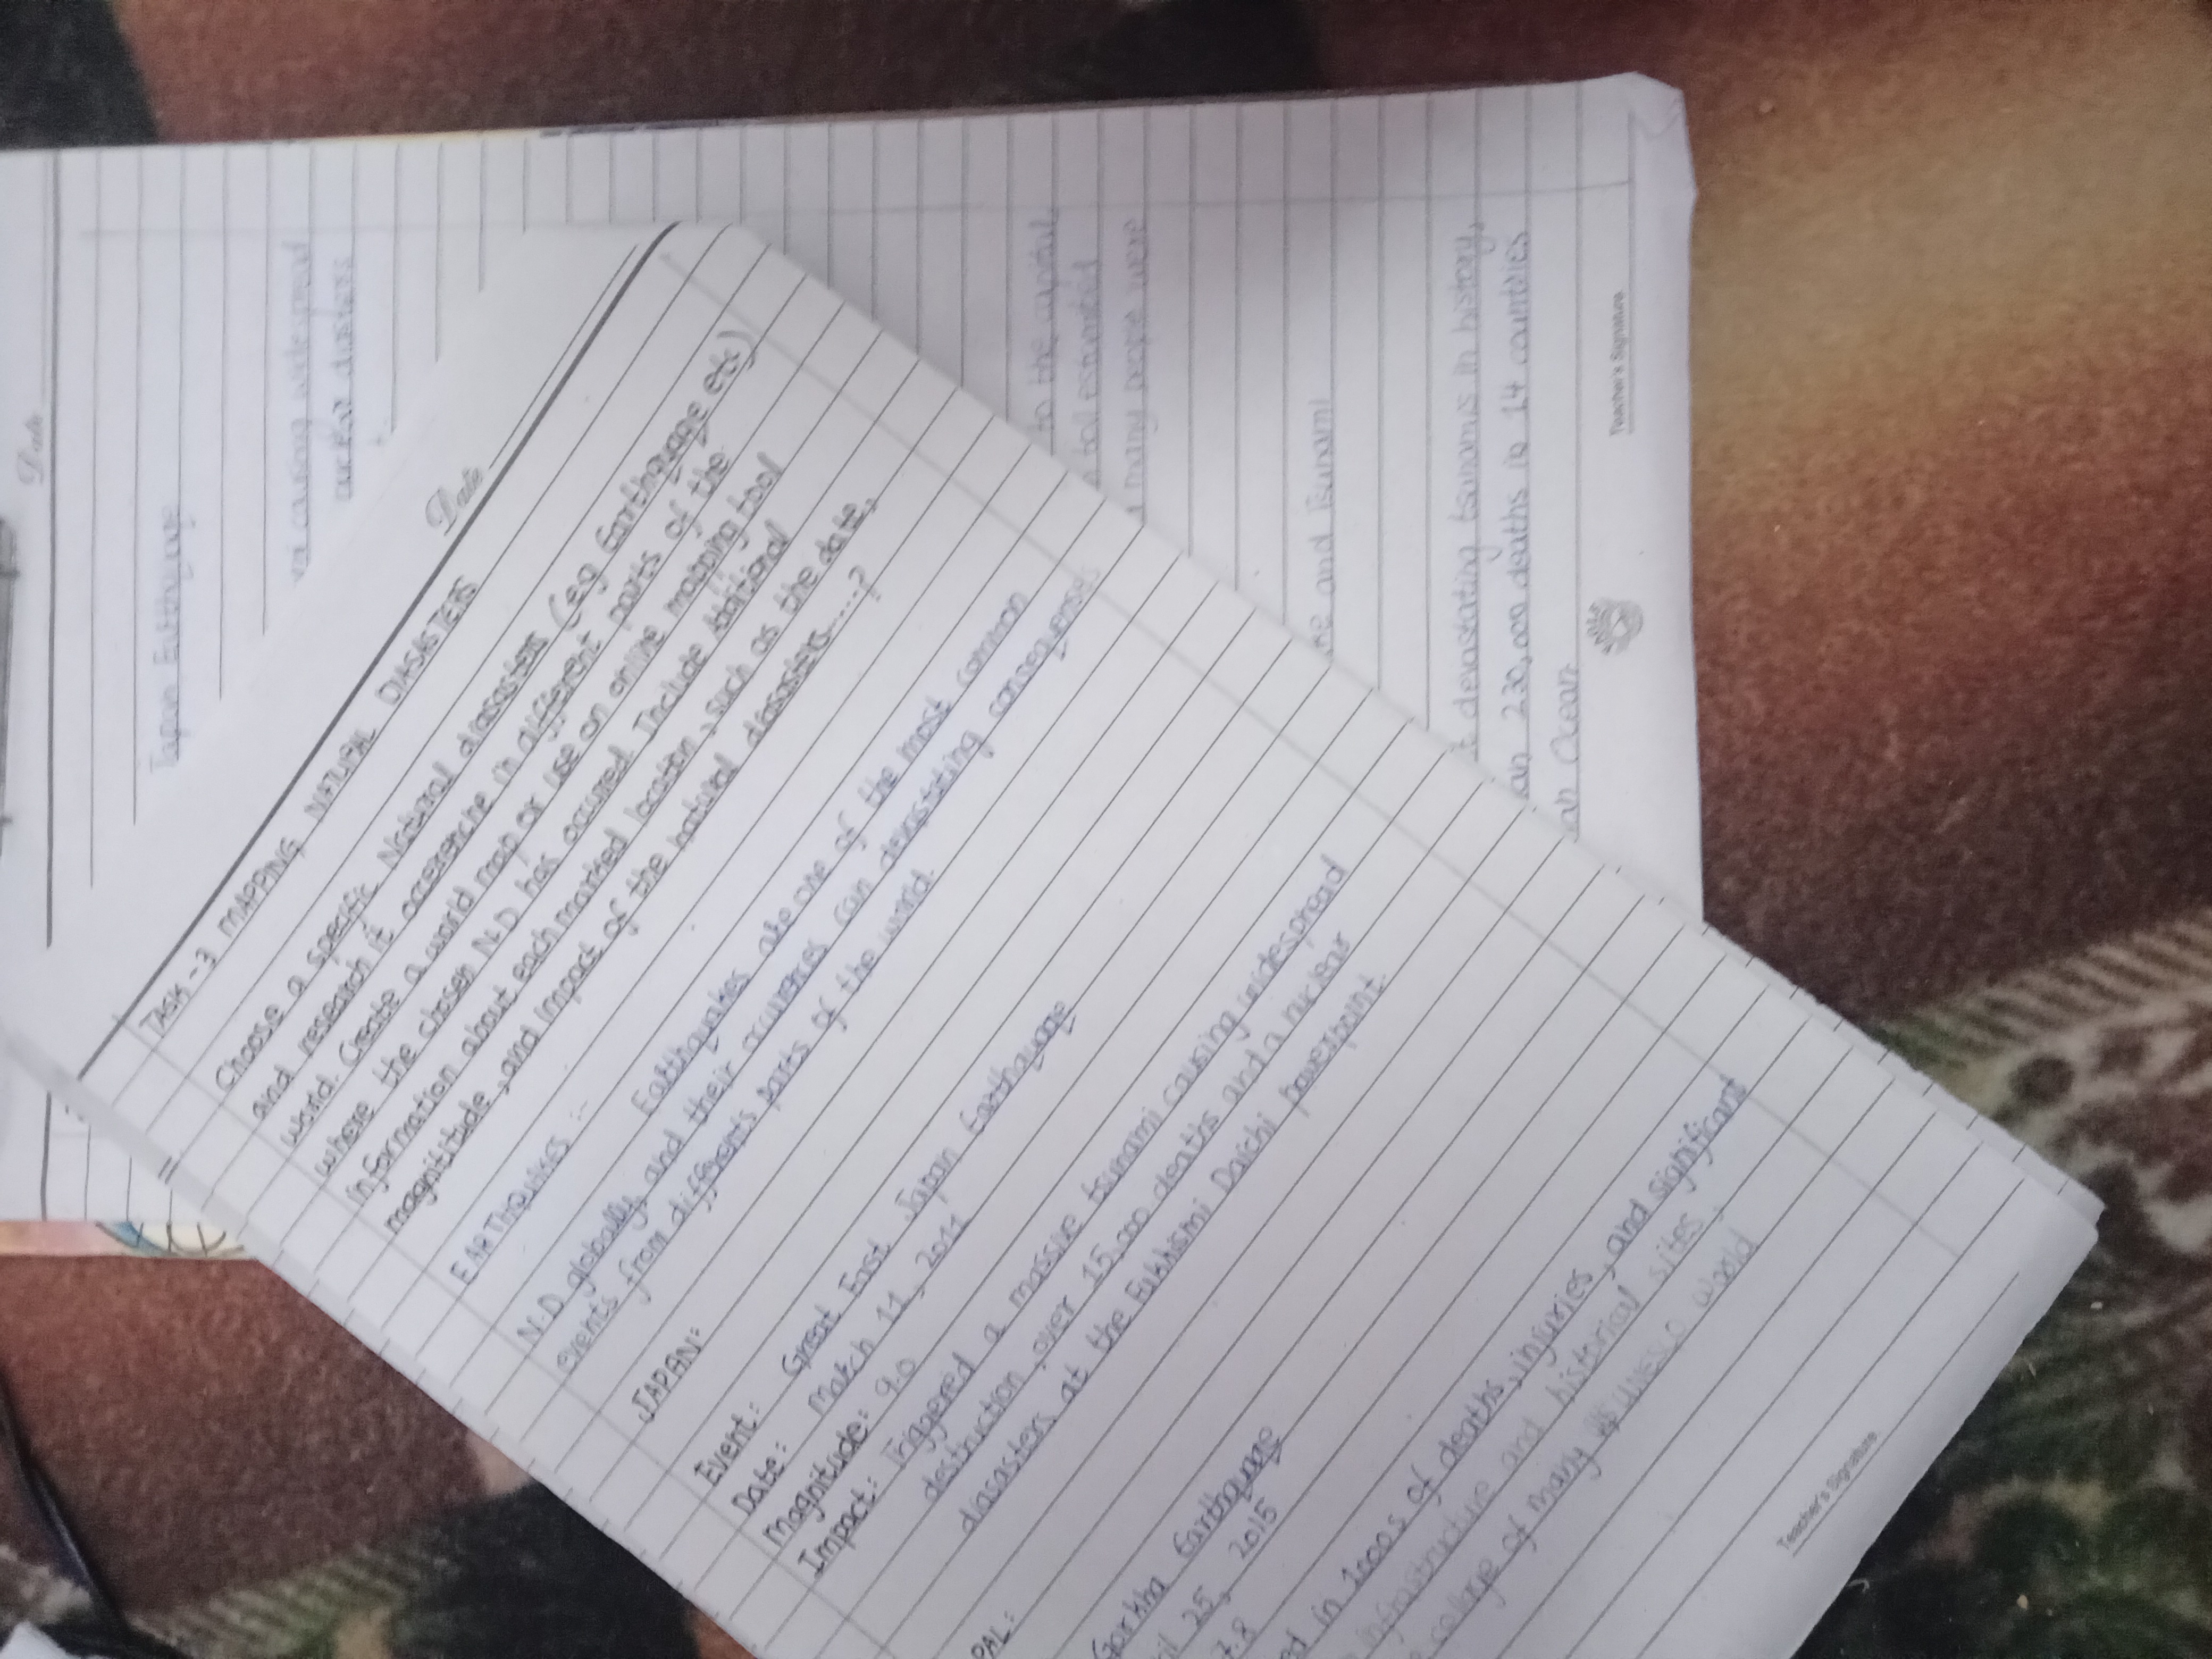 Date
TASK - 3 MAPPING NATURAL DIASASTERS
Choose a specific Natural diasasters (e.g Earthquage etc)
and research it occerencine in different parts of the
world. Create a world map or use on online mapping tool
where the chosen N.D has occured. Include Additional
information about each marked location, such as the date,
magnitiude, and impact of the natural diasasters.....?
EARTHQUAKES :-
Earthquakes are one of the most common
N.D globally, and their occurences can devastating consequenses
events from differents parts of the world.
JAPAN:
Event: Great East Japan Earthquage
Date: March 11, 2011
Magnitude: 9.0
Impact: Triggered a massive tsunami causing widespread
destruction, over 15,000 deaths and a nuclear
diasasters at the Fukhismi Daichi powerpoint.
PAL:
Gorkha Earthquage
25, 2015
7.8
in 1000s of deaths, injuries, and significant
infrastructure and historical sites,
collapse of many UNESCO world
Teacher's Signature
Date
Japan Earthquage
causing widespread
nuclear
to the capital
estimated
many people were
and Tsunami
devastating tsunamis in history,
an 230,000 deaths in 14 countries
an Ocean.
Teacher's Signature